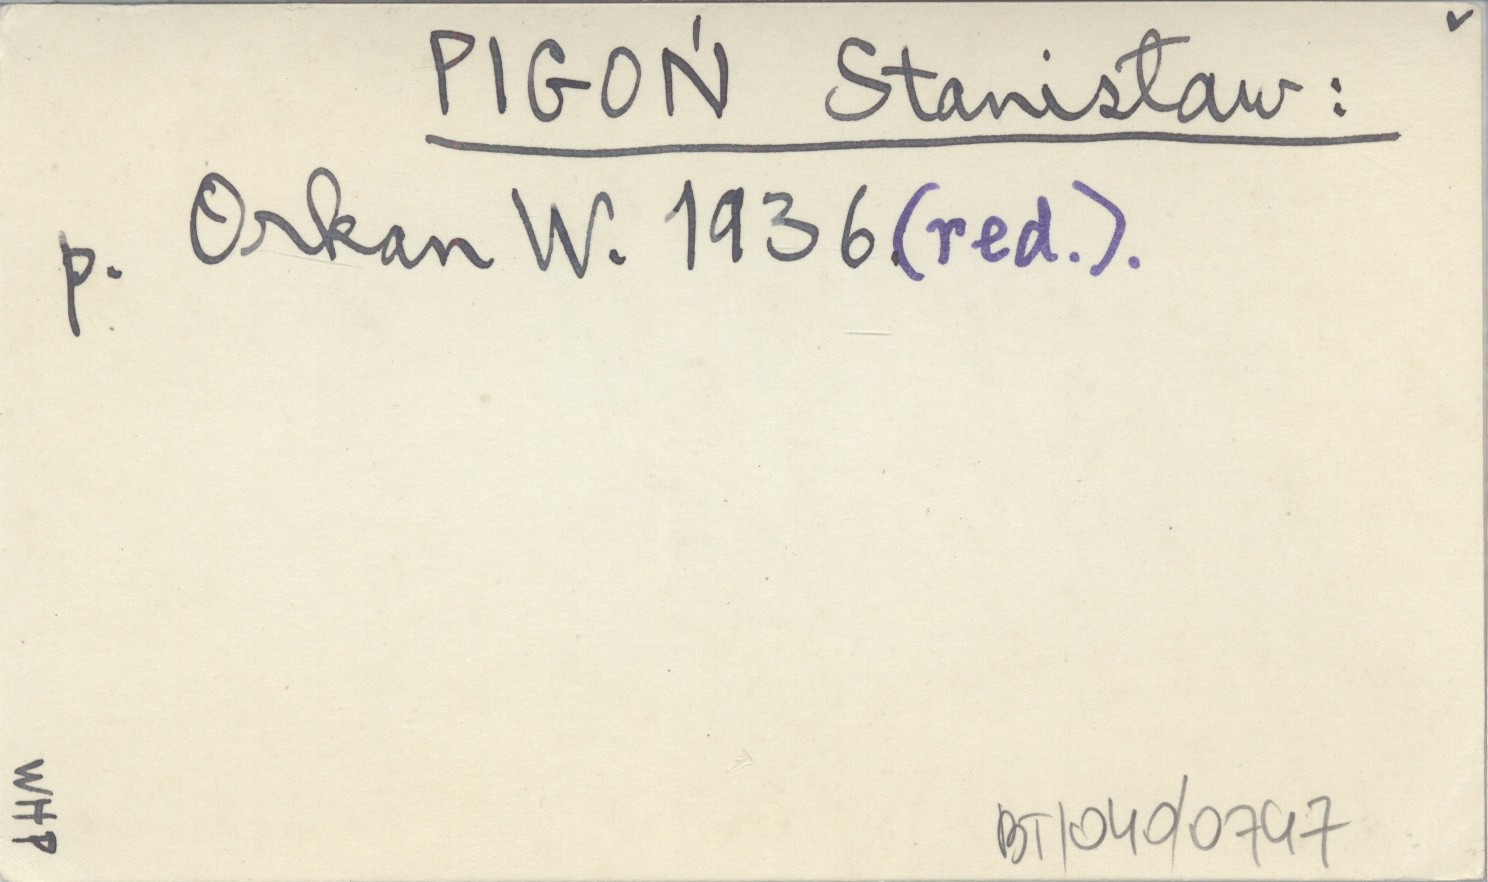 PIGOŃ Stanisław:
p. Orkan W. 1936.(red.).
WHP
BT/040/0747